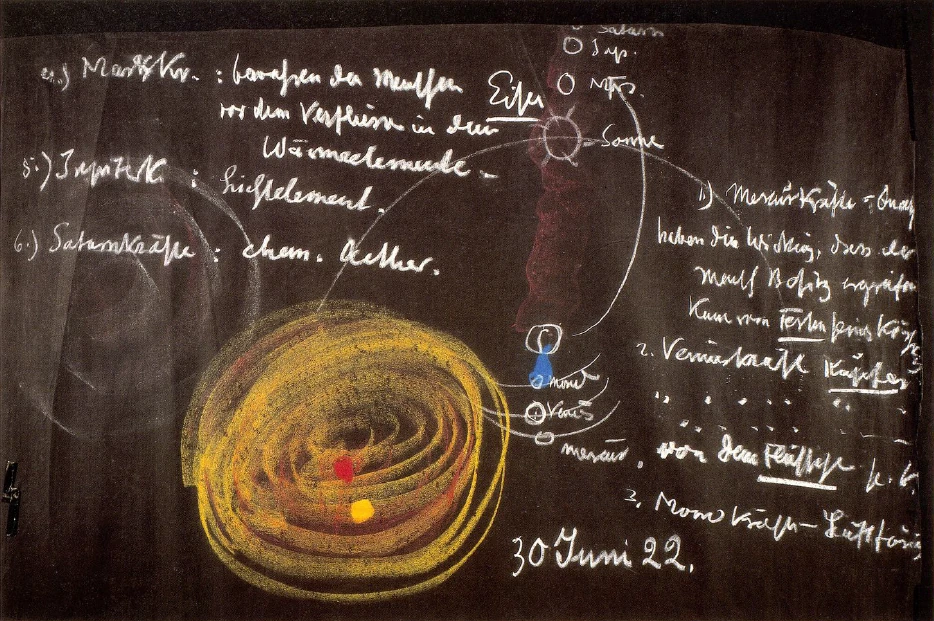 4.) Marskr. : bewahren den Menschen
vor dem Verfließen in dem
Wärmeelemente.
Eisen
5.) Jupiterk. : Lichtelement.
6.) Saturnkräfte : chem. Aether.
Saturn
Jup.
Mars.
Sonne
Mond
Venus
Mercur.
1.) Mercurkräfte –
haben die Wirkung, dass der
Mensch Besitz ergreifen
kann von Festen seines
2. Venuskraft Kupfer
" " " " " "
von dem Flüssigen
3. Mondkräfte – Luftförmig
30 Juni 22.